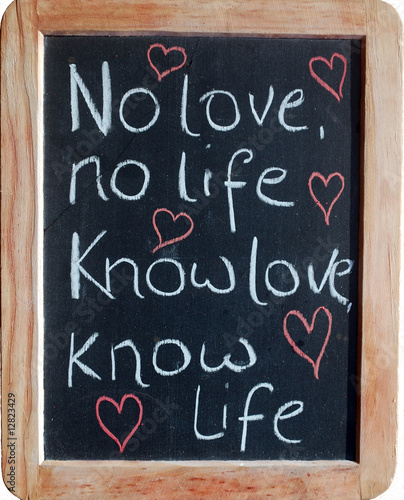 No love,
no life
Know love,
know
Life
Adobe Stock | #12823429